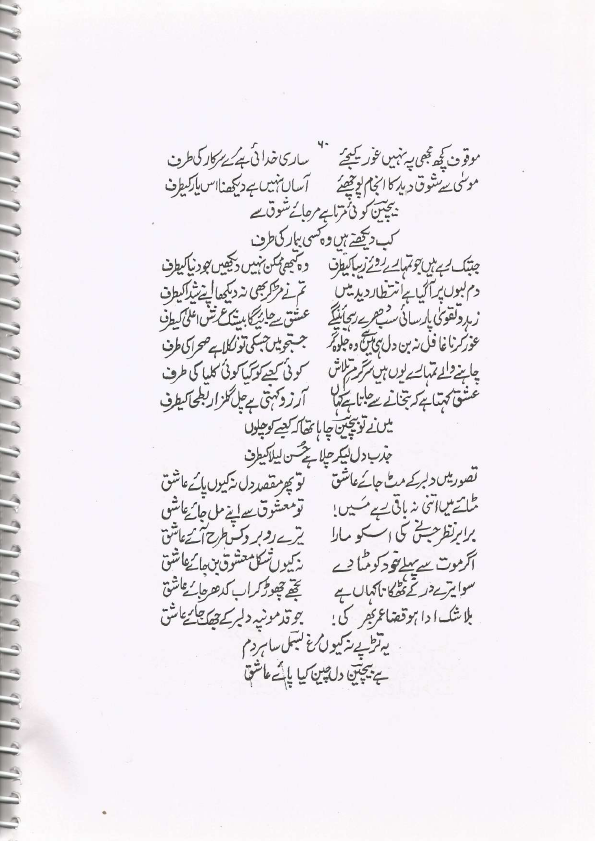 ۶۰
موقوف کچھ مجھی پہ نہیں غور کیجئے ساری خدائی ہے مرے سرکار کی طرف
موسیٰ سے شوق دید کا انجام پوچھئے آساں نہیں ہے دیکھنا اس یار کیطرف
بیچین کوئی مرتا ہے مر جائے شوق سے
کب دیکھتے ہیں وہ کسی بیمار کی طرف
جتبک رہے ہیں جو تمہارے روئے زیبا کیطرف وہ کبھی ممکن نہیں دیکھیں جو دنیا کیطرف
دم لبوں پر آ گیا ہے انتظار دید میں تم نے مڑ کر بھی نہ دیکھا اپنے شیدا کیطرف
زہد و تقویٰ پارسائی سب دھرے رہجائینگے عشق لے جائیگا بیشک عرش اعلیٰ کیطرف
غور کرنا غافل نہ بن دل ہی میں ہے وہ جلوہ گر جستجو میں جسکی تو نکلا ہے صحرا کی طرف
چاہنے والے تمہارے یوں ہیں سرگرم تلاش کوئی کعبے کو گیا کوئی کلیسا کی طرف
عشق کہتا ہے کہ بتخانے سے جاتا ہے کہاں آرزو کہتی ہے چل گلزار بطحا کیطرف
میں نے تو بیچین چاہا تھا کہ کعبے کو چلوں
جذب دل لیکر چلا ہے حُسن لیلا کیطرف
تصور میں دلبر کے مٹ جائے عاشق تو پھر مقصد دل نہ کیوں پائے عاشق
مٹائے میں اتنی نہ باقی رہے مَیں! تو معشوق سے اپنے مل جائے عاشق
برابر نظر جس نے کی اسکو مارا ترے روبرو کس طرح آئے عاشق
اگر موت سے پہلے خود کو مٹا دے نہ کیوں شکل معشوق بن جائے عاشق
سوا تیرے در کے ٹھکانا کہاں ہے تجھے چھوڑ کر اب کدھر جائے عاشق
بلا شک ادا ہو قضا عمر بھر کی! جو قدمونپہ دلبر کے جھک جائے عاشق
یہ تڑپے نہ کیوں مرغ بسمل سا ہر دم
ہے بیچین دل چین کیا پائے عاشق